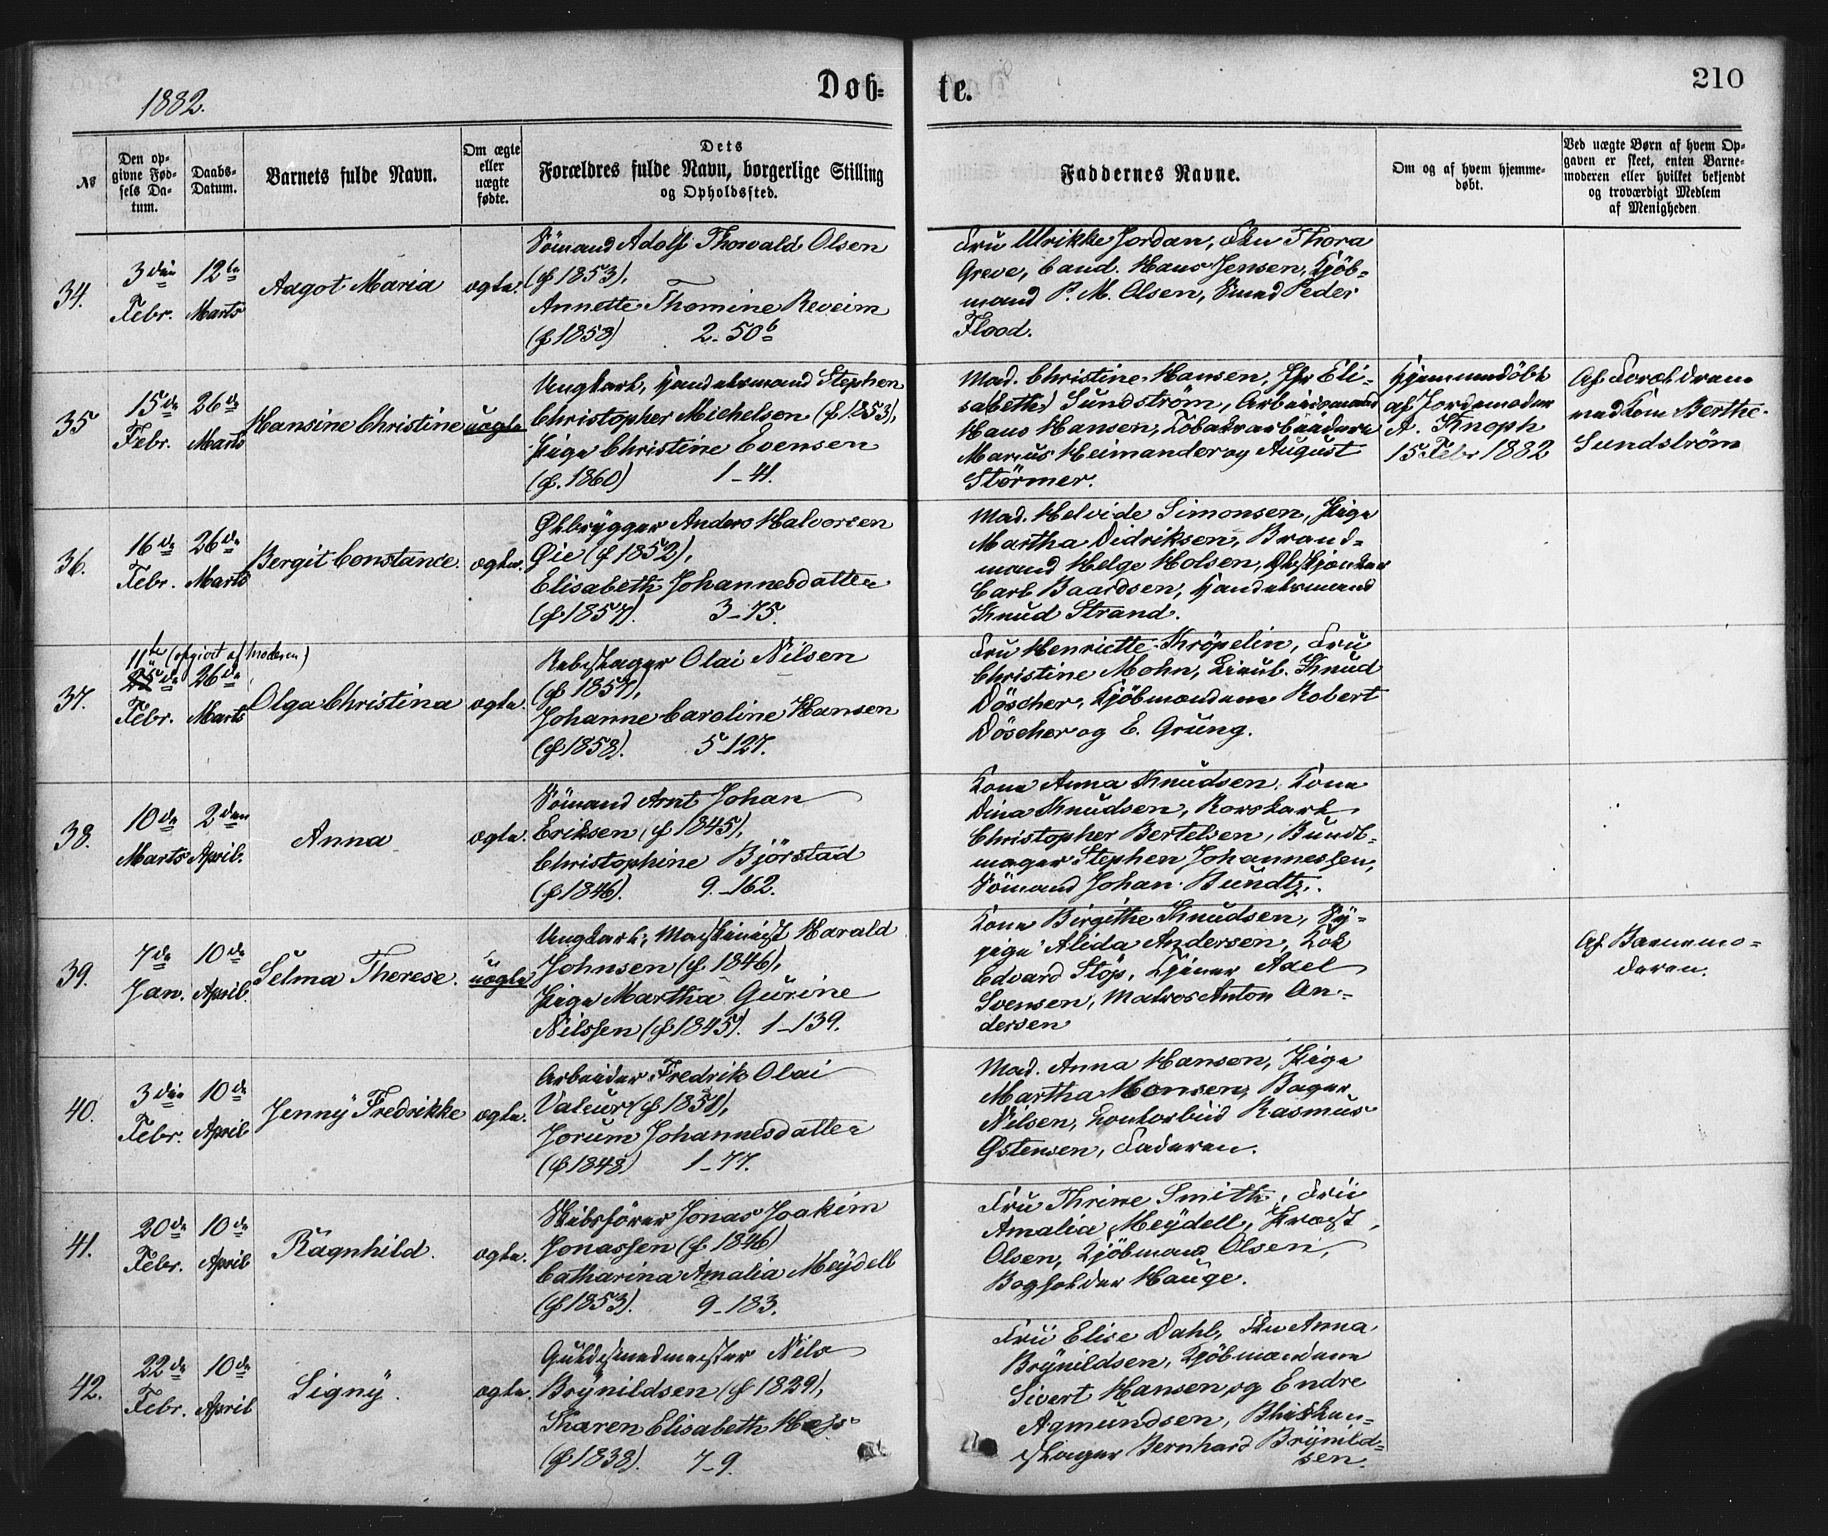 1882.
Døb-
te.
210
№
Den op-
givne Fød-
sels Da-
tum.
Daabs-
Datum.
Barnets fulde Navn.
Om ægte
eller
uægte
fødte.
Dets
Forældres fulde Navn, borgerlige Stilling
og Opholdssted.
Faddernes Navne.
Om og af hvem hjemme-
døbt.
Ved uægte Børn af hvem Op-
gaven er skeet, enten Barne-
moderen eller hvilket bekjendt
og troværdigt Medlem
af Menigheden
34.
3die
Febr.
12te
Marts
Aagot Maria
ægte.
Sömand Adolf Thorvald Olsen
(f 1853),
Annette Thomine Reveim
(f 1853) 2-50b
Fru Ulrikke Jordan, Fru Thora
Greve, Cand. Hans Jensen, Kjöb-
mand P. M. Olsen, Smed Peder
Flood.
35
15de
Febr.
26de
Marts
Hansine Christine
uægte
Ungkarl, Handelsmand Stephen
Christopher Michelsen (f 1853),
Pige Christine Evensen
(f. 1860) 1-41.
Mad. Christine Hansen, Jfr Eli-
sabeth Sundström, Arbeidsmand
Hans Hansen, Tobaksarbeidere
Marius Heimander og August
Störmer.
Hjemmedöbt
af Jordemoder
A. Knoph
15 Febr 1882
Af Forældrene
ved Berthe
Sundström
36.
16de
Febr.
26de
Marts
Bergit Constance.
ægte.
Ölbrygger Anders Halvorsen
Øie (f 1852),
Elisabeth Johannesdatter
(f 1857). 3-75.
Mad. Helvide Simonsen, Pige
Martha Didriksen, Brand-
mand Helge Holsen,
Carl Baardsen, Handelsmand
Knud Strand.
37.
11te (opgivet af Moderen)
25de
Febr.
26de
Marts
Olga Christina
ægte.
Rebslager Olai Nilsen
(f 1857),
Johanne Caroline Hansen
(f 1858). 5-127.
Fru Henriette Kröpelin, Fru
Christine Mohn, Lieut. Knud
Döscher, Kjöbmændene Robert
Döscher og E. Grung.
38.
10de
Marts
2den
April.
Anna
ægte.
Sömand Arnt Johan
Eriksen (f 1845),
Christophine Björstad
(f 1846). 9-162.
Kone Anna Knudsen, Kone
Dina Knudsen, Rorskarl
Christopher Bertelsen, Bundt-
mager Stephen Johannessen,
Sömand Johan Bundtz.
39.
7de
Jan.
10de
April
Selma Therese.
uægte
Ungkarl, Maskinist Harald
Johnsen (f. 1846),
Pige Martha Gurine
Nilssen (f 1845). 1-139.
Kone Birgithe Knudsen, Sy-
pige Alida Andersen, Kok
Edvard Stöp, Tjener Axel
Svensen, Matros Anton An-
dersen
Af Barnemo-
deren.
40.
3die
Febr.
10de
April
Jenny Fredrikke
ægte.
Arbeider Fredrik Olai
Valeur (f 1851),
Jorum Johannesdatter
(f 1848) 1-77.
Mad. Anna Hansen, Pige
Martha Monsen, Bager
Nilsen, Contorbud Rasmus
Østensen, Faderen.
41.
20de
Febr.
10de
April
Ragnhild.
ægte.
Skibsförer Jonas Joakim
Jonassen (f. 1846)
Catharina Amalia Meydell
(f 1853). 9-183.
Fru Thrine Smith, Fru
Amalia Meydell, Præst
Olsen, Kjöbmand Olsen,
Bogholder Hauge.
42.
22de
Febr.
10de
April
Signy.
ægte.
Guldsmedmester Nils
Brynildsen (f 1829),
Karen Elisabeth
(f 1838). 7-9.
Fru Elise Dahl, Fru Anna
Brynildsen, Kjöbmændene
Sivert Hansen og Endre
Agmundsen, Blikken-
slager Bernhard Brynild-
sen.